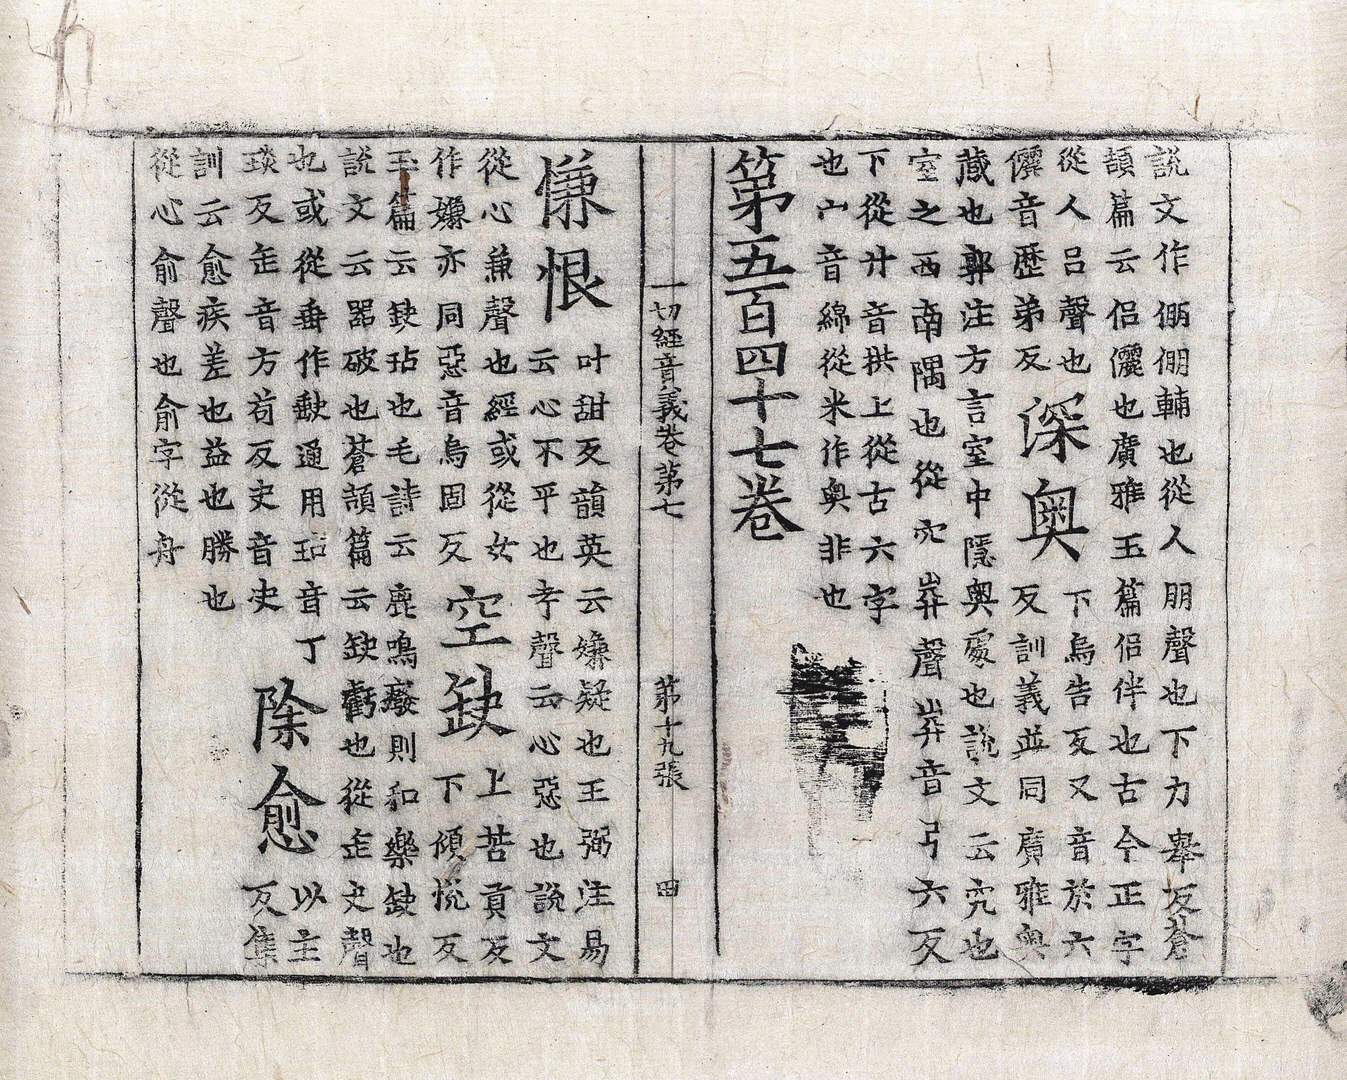 說文作倗倗輔也從人朋聲也下力舉反蒼
頡篇云侶儷也廣雅玉篇侶伴也古今正字
從人呂聲也
儷音歷弟反
深奧
下烏告反又音於六
反訓義並同廣雅奧
藏也郭注方言室中隱奧處也說文云究也
室之西南隅也從穴𢍏聲𢍏音弓六反
下從廾音拱上從古六字
也宀音綿從米作奧非也
第五百四十七卷
一切經音義卷第七 第十九張 田
慊恨
叶甜反韻英云嫌疑也王弼注易
云心不平也考聲云心惡也說文
從心兼聲也經或從女
作嫌亦同惡音烏固反
空缺
上苦貢反
下傾悅反
玉篇云缺玷也毛詩云鹿鳴廢則和樂缺也
說文云器破也蒼頡篇云缺虧也從缶史聲
也或從垂作𡙇通用玷音丁
琰反缶音方苟反史音史
除愈
以主
反集
訓云愈疾差也益也勝也
從心俞聲也俞字從舟